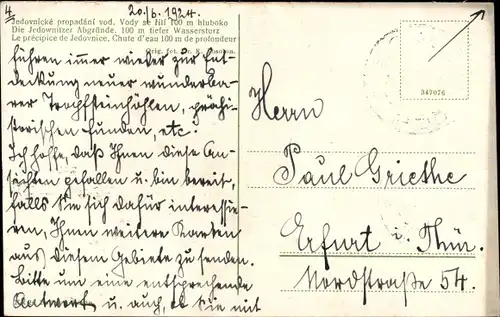 4.
20./6. 1924.
Jedovnické propadání vod. Vody se řítí 100 m hluboko
Die Jedownitzer Abgründe. 100 m tiefer Wassersturz
Le précipice de Jedovnice. Chute d'eau 100 m de profondeur
Orig. fot. Dr. K. Absolon.
führen immer wieder zur Ent-
deckung neuer wunderba-
rer Tropfsteinhöhlen, prähi-
storischen Funden, etc.
Ich hoffe, daß Ihnen diese An-
sichten gefallen u. bin bereit,
falls Sie sich dafür interessie-
ren, Ihnen weitere Karten
aus diesem Gebiete zu senden.
Bitte um eine entsprechende
Antwort u. auch, ob Sie mit
347076
Herrn
Paul Griethe
Erfurt i. Thür.
Nordstraße 54.